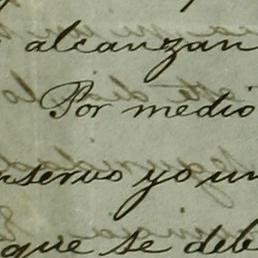 alcanzan
Por medio
nservo yo un
que se deb